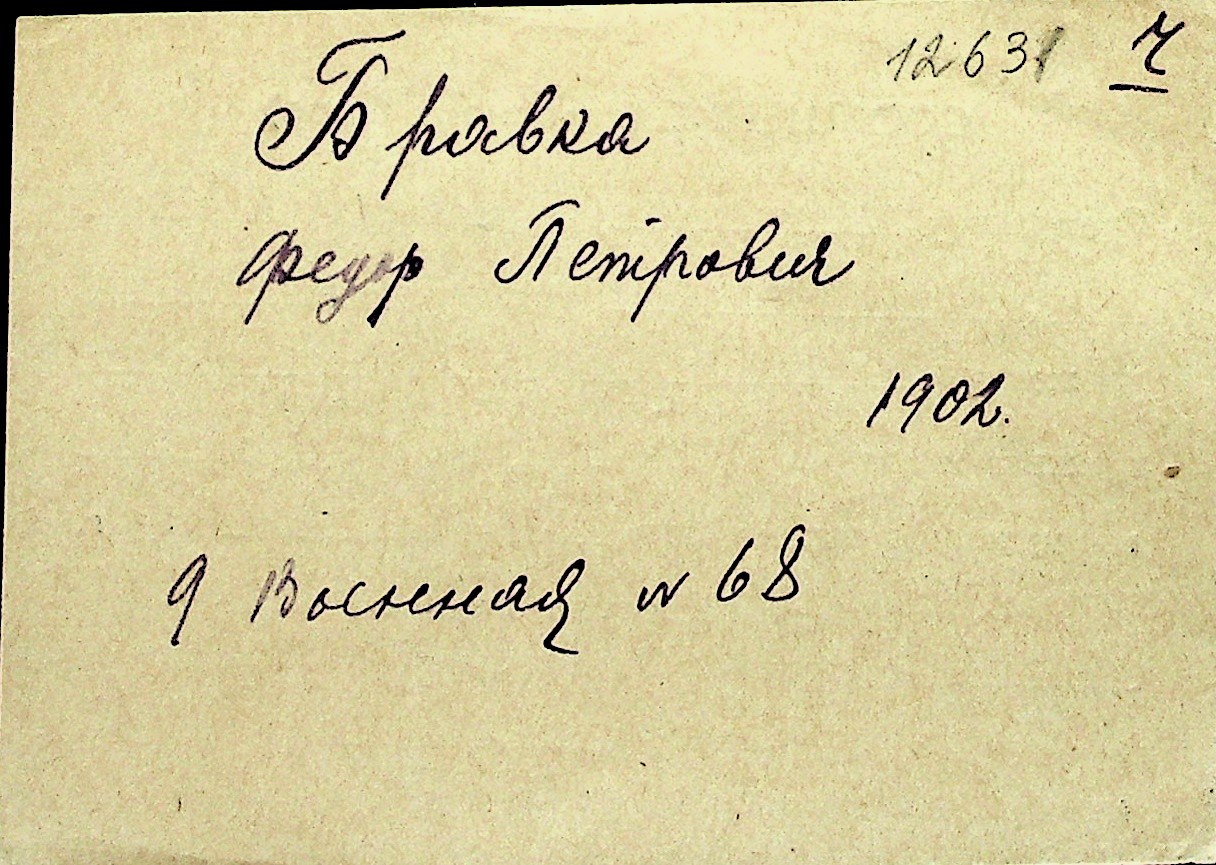 12631 Ч
Бравка
Федор Петрович
1902.
9 Военная № 68